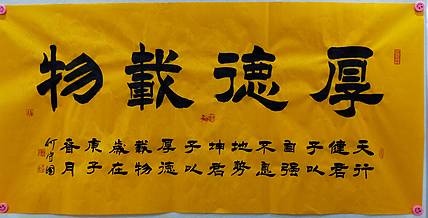 厚德載物
天行
健君
子以
自强
不息
地勢
坤君
子以
厚德
載物
歲在
庚子
香月